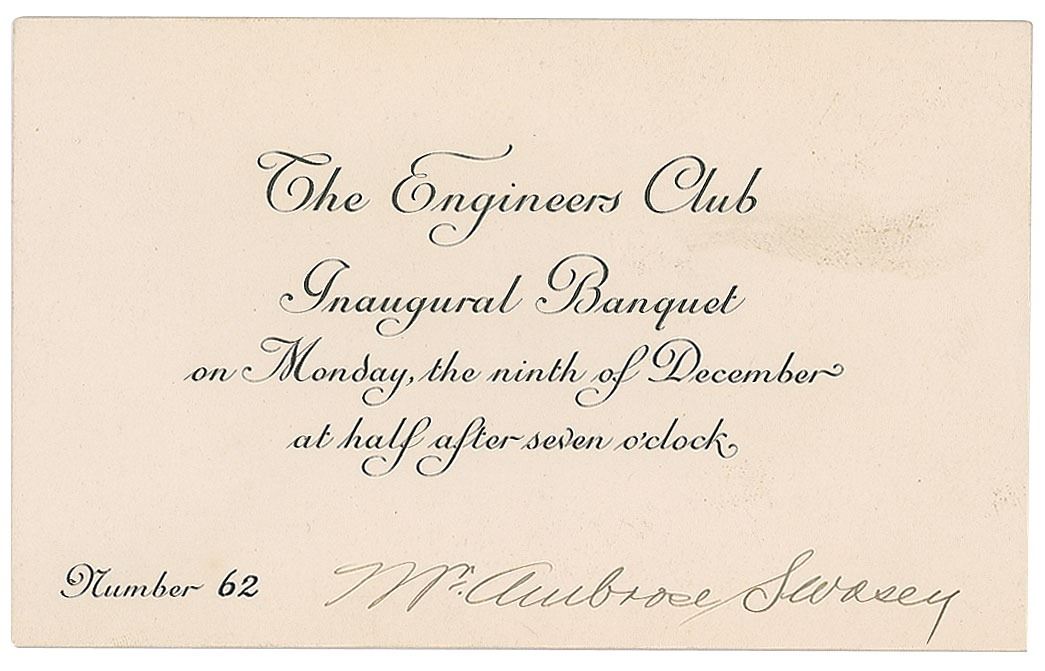 The Engineers Club
Inaugural Banquet
on Monday, the ninth of December
at half after seven o'clock
Number 62 Mr. Ambrose Swasey